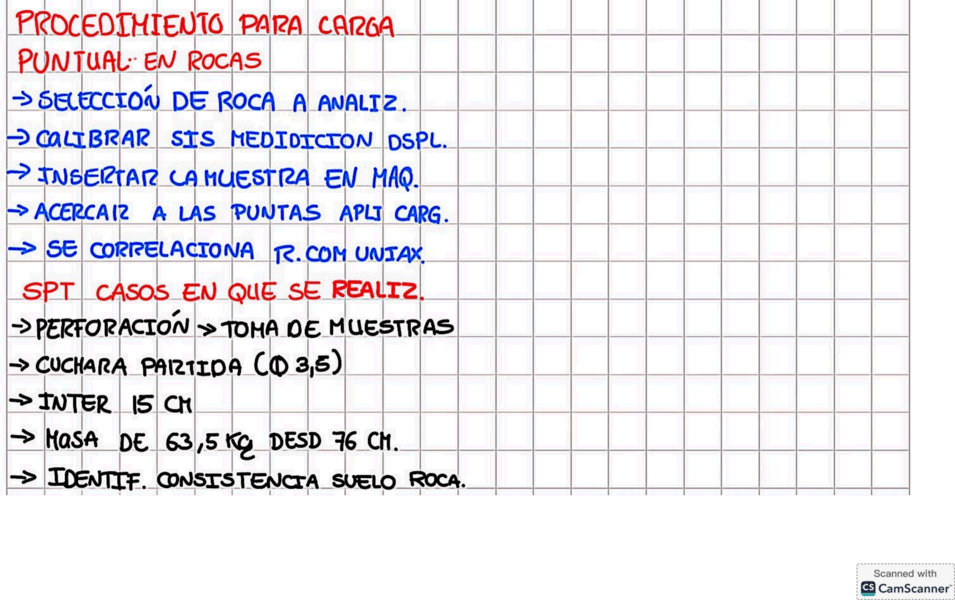 PROCEDIMIENTO PARA CARGA
PUNTUAL EN ROCAS
→ SELECCIÓN DE ROCA A ANALIZ.
→ CALIBRAR SIS MEDIDICION DSPL.
→ INSERTAR LA MUESTRA EN MAQ.
→ ACERCAR A LAS PUNTAS APLI CARG.
→ SE CORRELACIONA R.COM UNIAX.
SPT CASOS EN QUE SE REALIZ.
→ PERFORACIÓN → TOMA DE MUESTRAS
→ CUCHARA PARTIDA (Φ 3,5)
→ INTER 15 CM
→ MASA DE 63,5 Kg DESD 76 CM.
→ IDENTIF. CONSISTENCIA SUELO ROCA.
Scanned with
CS CamScanner